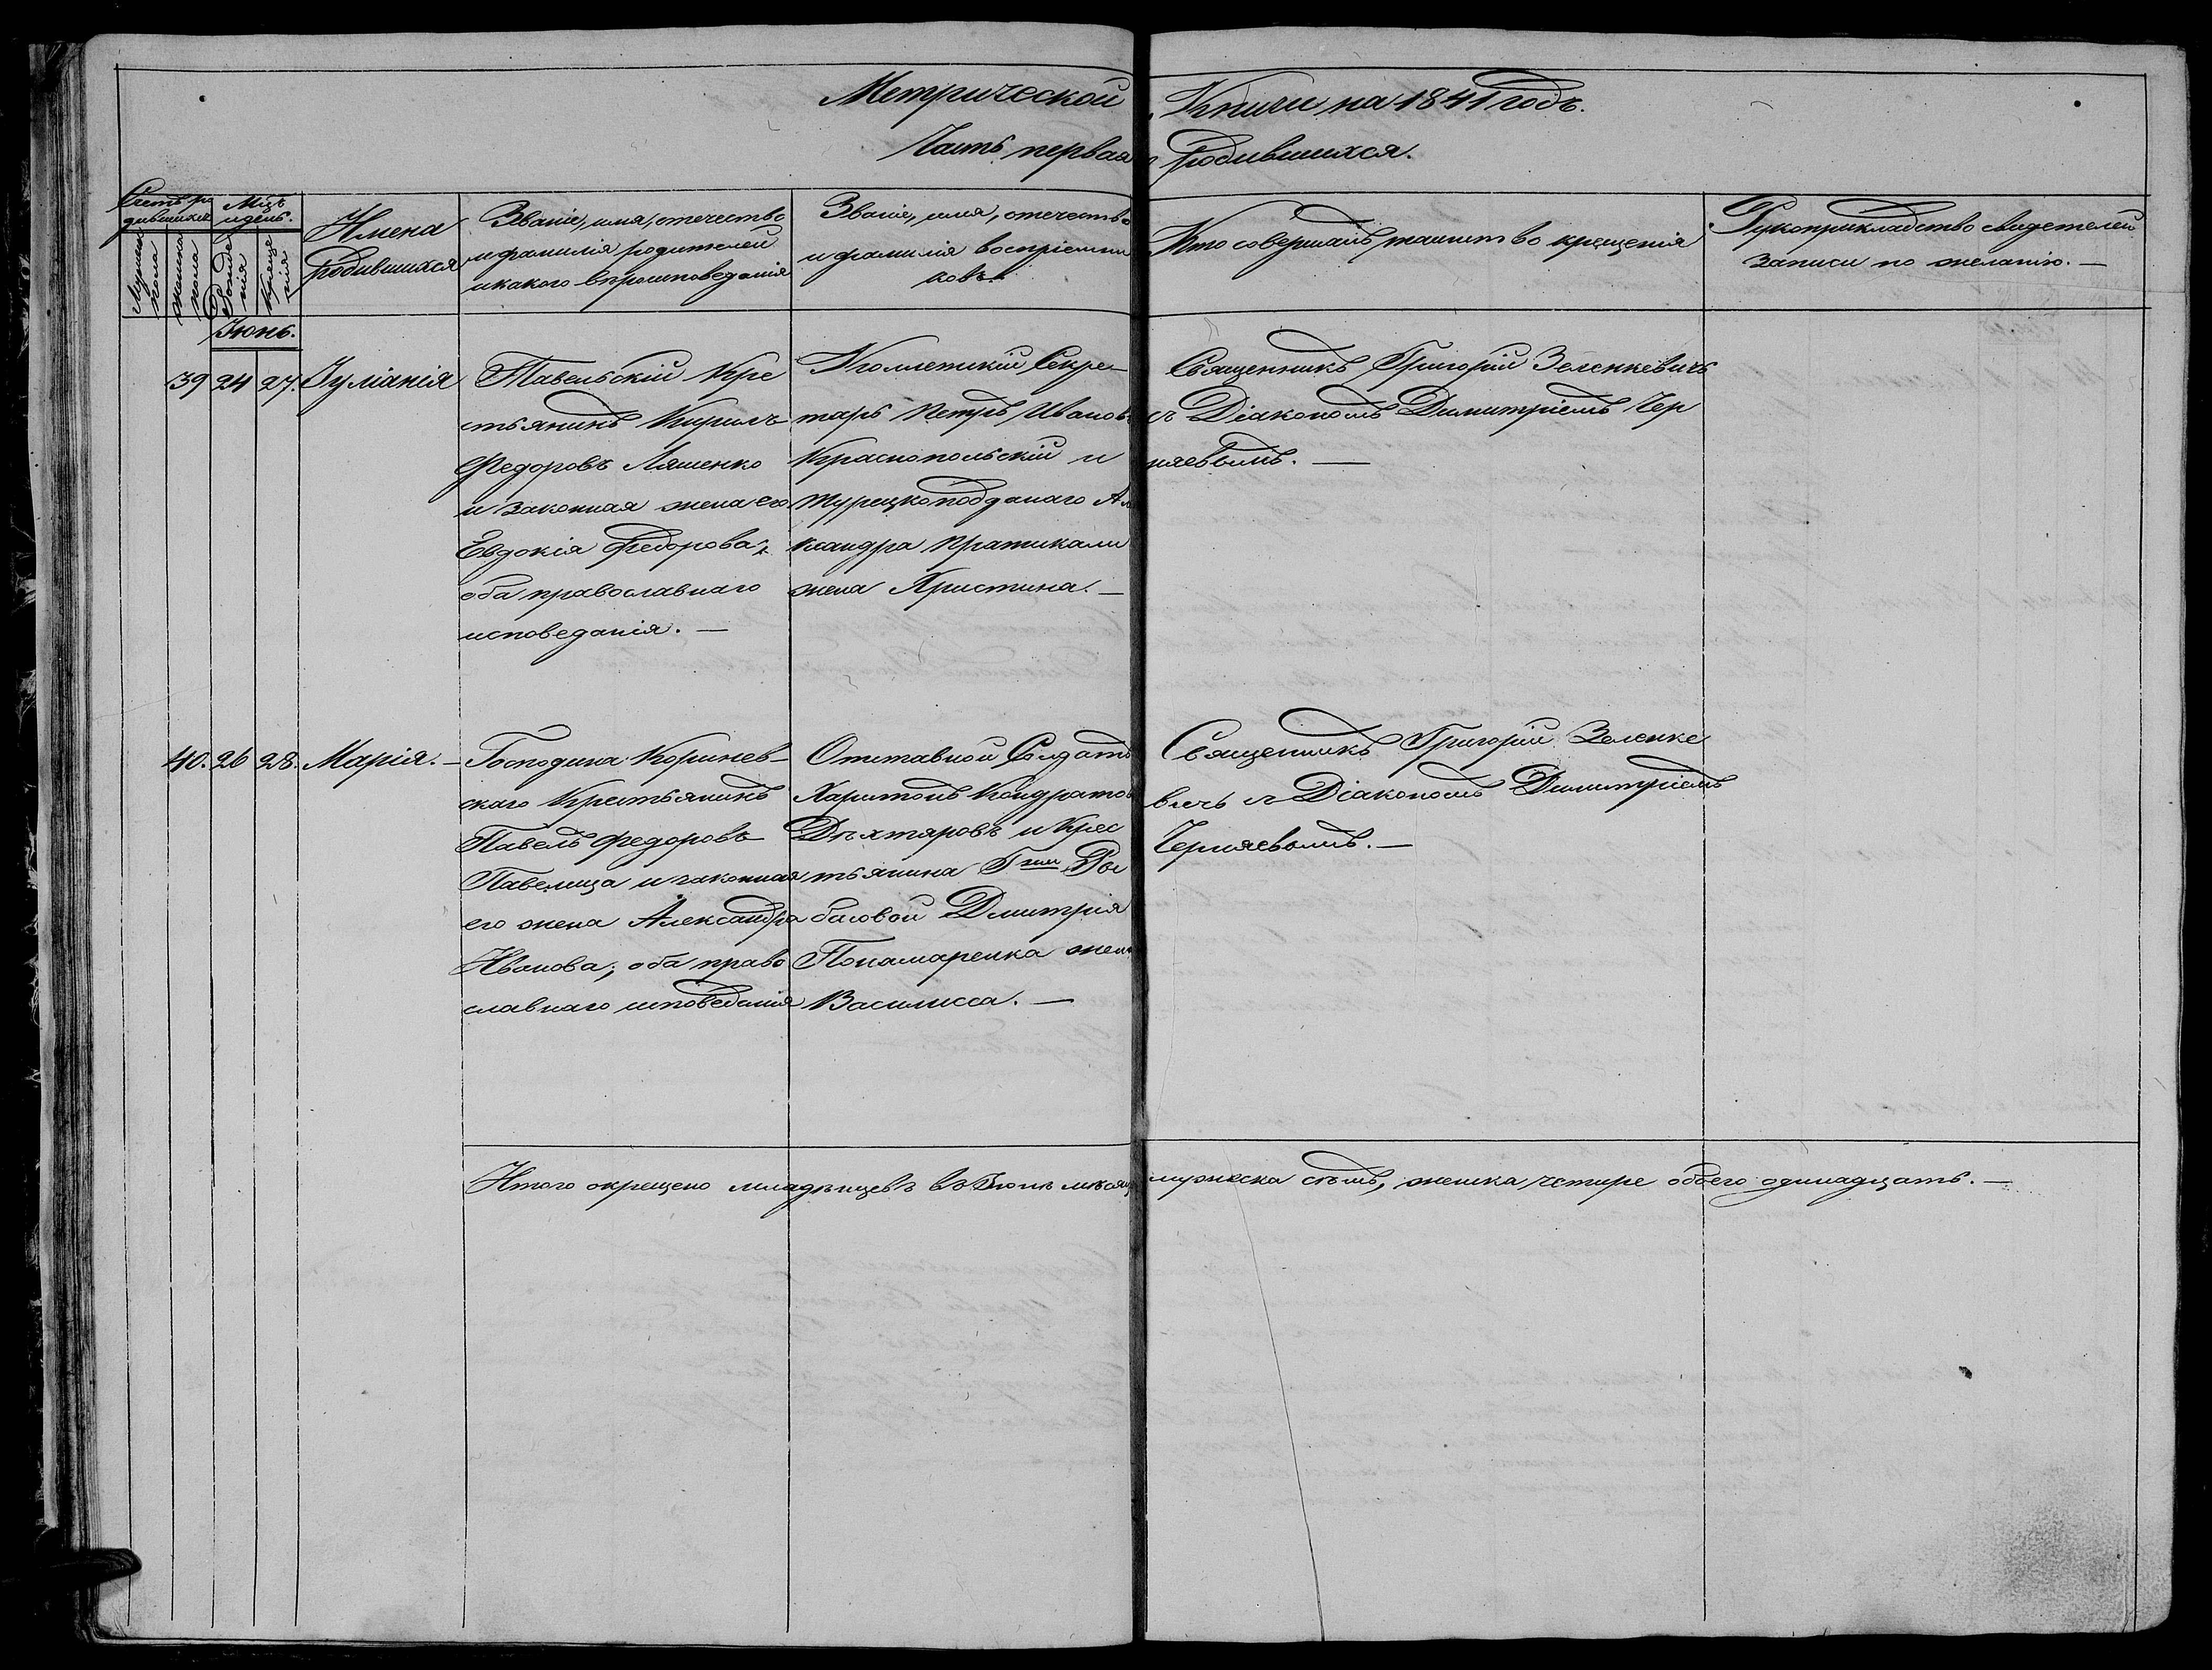 Метрической Книги на 1841 годъ.
Часть первая о родившихся.
Счетъ ро
дившихся
Мцъ
и день.
Мужеска
пола
Женска
пола
Рожде
нія
Креще
нія
Имена
родившихся
Званіе, имя, отечество
и фамилія родителей
и какого вѣроисповеданія
Званіе, имя, отечество
и фамилія воспріемни
ковъ.
Кто совершалъ таинство крещенія
Рукоприкладство свидетелей
записи по желанію. —
Іюнь.
39 24 27. Іуліанія
Тавельскій Кре
стьянинъ Кирилъ
Федоровъ Ляшенко
и законная жена его
Евдокія Федорова,
оба православнаго
исповеданія. —
Коллежскій Секре-
тарь Петръ Ивановъ
Краснопольскій и
турецкоподданаго Але
ксандра Пратикали
жена Христина. —
Священникъ Григорій Зеленкевичъ
съ Діакономъ Димитріемъ Чер
няевымъ. —
40. 26 28. Марія. —
Господина Кориневъ-
скаго Крестьянинъ
Павелъ Федоровъ
Павелица и законная
его жена Александра
Иванова; оба право
славнаго исповеданія
Отставной Солдатъ
Харитонъ Кондратов
Дѣхтяровъ и Крес
тьянина Гжи Ры
басовой Дмитрія
Понамаренка жена
Василисса. —
Священникъ Григорій Зеленке
вичъ съ Діакономъ Димитріемъ
Черняевымъ. —
Итого окрещено младѣнцевъ въ Іюнѣ мѣсяцѣ мужеска сѣмь, женска четире обоего одинадцать. —